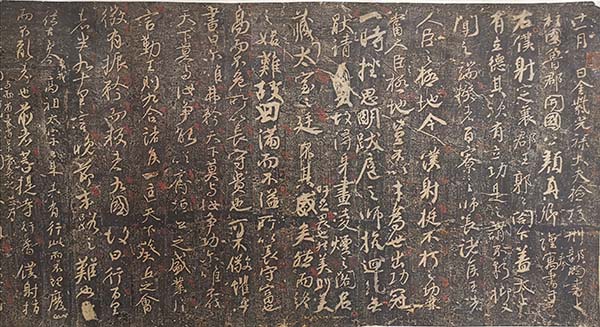 十一月日金紫光祿大夫檢校刑部尚書上
柱國魯郡開國公顏真卿謹奉書于
右僕射定襄郡王郭公閣下蓋太上
有立德其次有立功是之謂不朽抑又
聞之端揆者百寮之師長諸侯王者
人臣之極地今僕射挺不朽之功業
當人臣極地豈不以才為世出功冠
一時挫思明跋扈之師抗迴紇無
猒之請故得身畫凌煙之閣名
藏太室之廷吁足畏也然美則美矣
而終之始難故曰滿而不溢所以長守富也
高而不危所以長守貴也可不儆懼乎
書曰爾唯弗矜天下莫與汝爭功爾唯不伐
天下莫與汝爭能以齊桓公之盛業片
言勤王則九合諸侯一匡天下葵丘之會
微有振矜而叛者九國故曰行百里
者半九十里言晚節末路之難也
從古至今暨我高祖太宗已來未有行此而不理廢此
而不亂者也前者菩提寺行香僕射指